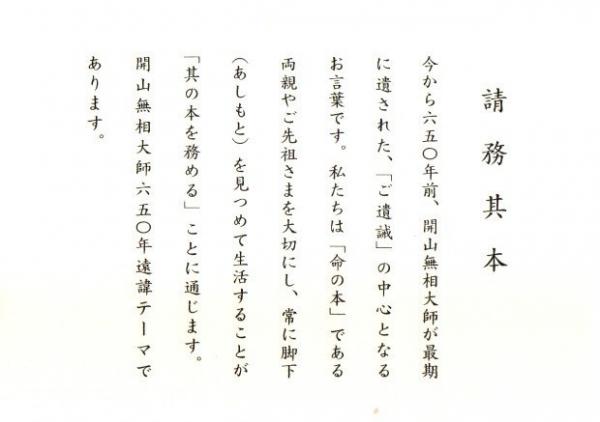 請務其本
今から六五〇年前、開山無相大師が最期
に遺された、「ご遺誡」の中心となる
お言葉です。私たちは「命の本」である
両親やご先祖さまを大切にし、常に脚下
（あしもと）を見つめて生活することが
「其の本を務める」ことに通じます。
開山無相大師六五〇年遠諱テーマで
あります。